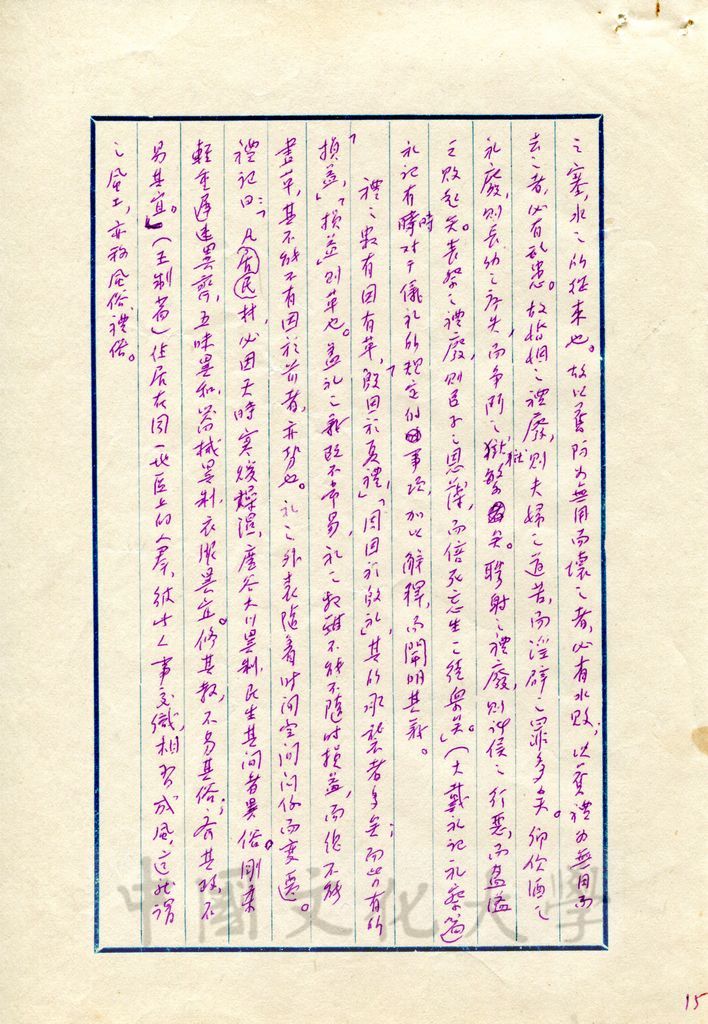 之塞,水之所從來也。故以舊防為無用而壞之者,必有水敗;以舊禮為無用而
去之者,必有亂患。故婚姻之禮廢,則夫婦之道苦,而淫辟之罪多矣。鄉飲酒之
礼廢,則長幼之序失,而争鬥之獄繁矣。聘射之禮廢,則諸侯之行惡,而盈溢
之敗起矣。喪祭之禮廢,則臣子之恩薄,而倍死忘生之徒衆矣。」(大戴礼記礼察篇)
礼記有時对于儀礼所規定的事項,加以解釋,而闡明其義。
禮之興有因有革,「殷因於夏禮」,「周因於殷礼」,其所承襲者多矣;而皆有所
「損益」,「損益」則革也。蓋礼之義既不常易,礼之 不能不隨时損益,而終不能
盡革,其不能不有因於前者,亦势也。礼之外表隨着时间空间関係而變遷。
禮記曰:「凡居民材,必因天時寒煖燥濕,廣谷大川異制,民生其间者異俗。剛柔
輕重遲速異齊,五味異和,器械異制,衣服異宜。修其教,不易其俗;齊其政,不
易其宜。」(王制篇)住居在同一地區上的人羣,彼此人事交織,相習成風,這所謂
之風土,亦称風俗禮俗。
中國文化大學
15